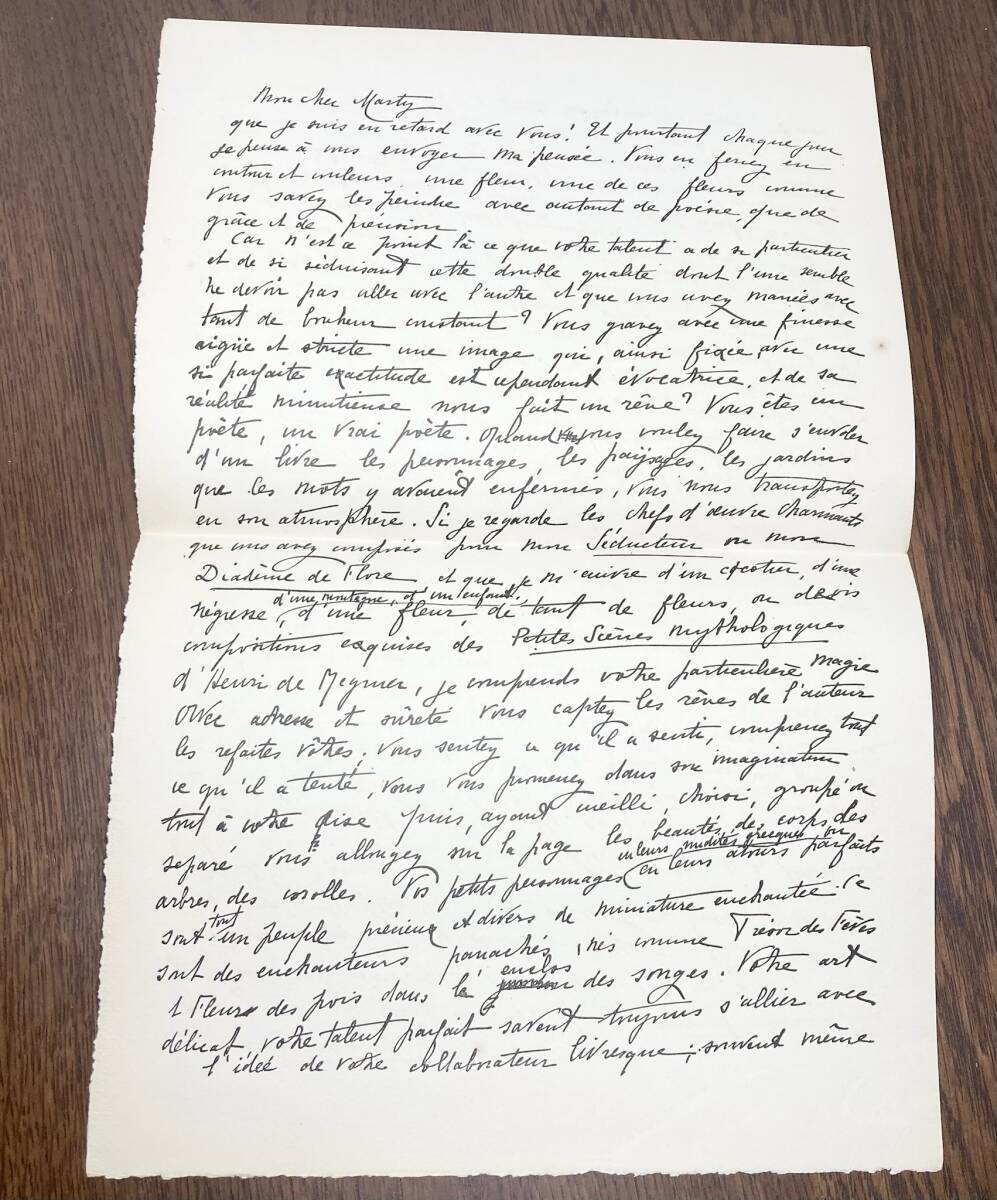 Mon cher Marty
que je suis en retard avec vous! Et pourtant chaque jour
je pense à vous envoyer ma pensée. Vous en feriez en
contour et couleurs, une fleur, une de ces fleurs comme
vous savez les peindre avec autant de poésie, que de
grâce et de précision.
Car n'est ce point là ce que votre talent a de si particulier
et de si séduisant cette double qualité dont l'une semble
ne devoir pas aller avec l'autre et que vous avez mariées avec
tant de bonheur constant? Vous gravez avec une finesse
aigüe et stricte une image qui, ainsi fixée avec une
si parfaite exactitude est cependant évocatrice, et de sa
réalité minutieuse nous fait un rêve? Vous êtes un
poète, un vrai poète. Quand vous voulez faire s'envoler
d'un livre les personnages, les paysages, les jardins
que les mots y avaient enfermés, vous nous transportez
en son atmosphère. Si je regarde les chefs d'œuvre charmants
que vous avez composés pour mon Séducteur ou mon
Diadème de Flore, et que je m'enivre d'un cocotier, d'une
d'une montagne, et d'un enfant,
négresse, d'une fleur, de tant de fleurs, ou des
compositions exquises des Petites Scènes mythologiques
d'Henri de Régnier, je comprends votre particulière magie
Avec adresse et sûreté vous captez les rêves de l'auteur
les refaites vôtres; vous sentez ce qu'il a senti, comprenez tout
ce qu'il a tenté, vous vous promenez dans son imagination
tout à votre aise puis, ayant cueilli, choisi, groupé ou
separé vous allongez sur la page les beautés des corps des
en leurs nudités grecques ou
arbres, des corolles. Vos petits personnages en leurs atours parfaits
tout
sont un peuple précieux et divers de miniature enchantée. Ce
sont des enchanteurs panachés, nés comme Trésor des Fèves
enclos
et Fleur des pois dans le des songes. Votre art
délicat, votre talent parfait savent toujours s'allier avec
l'idée de votre collaborateur livresque; souvent même